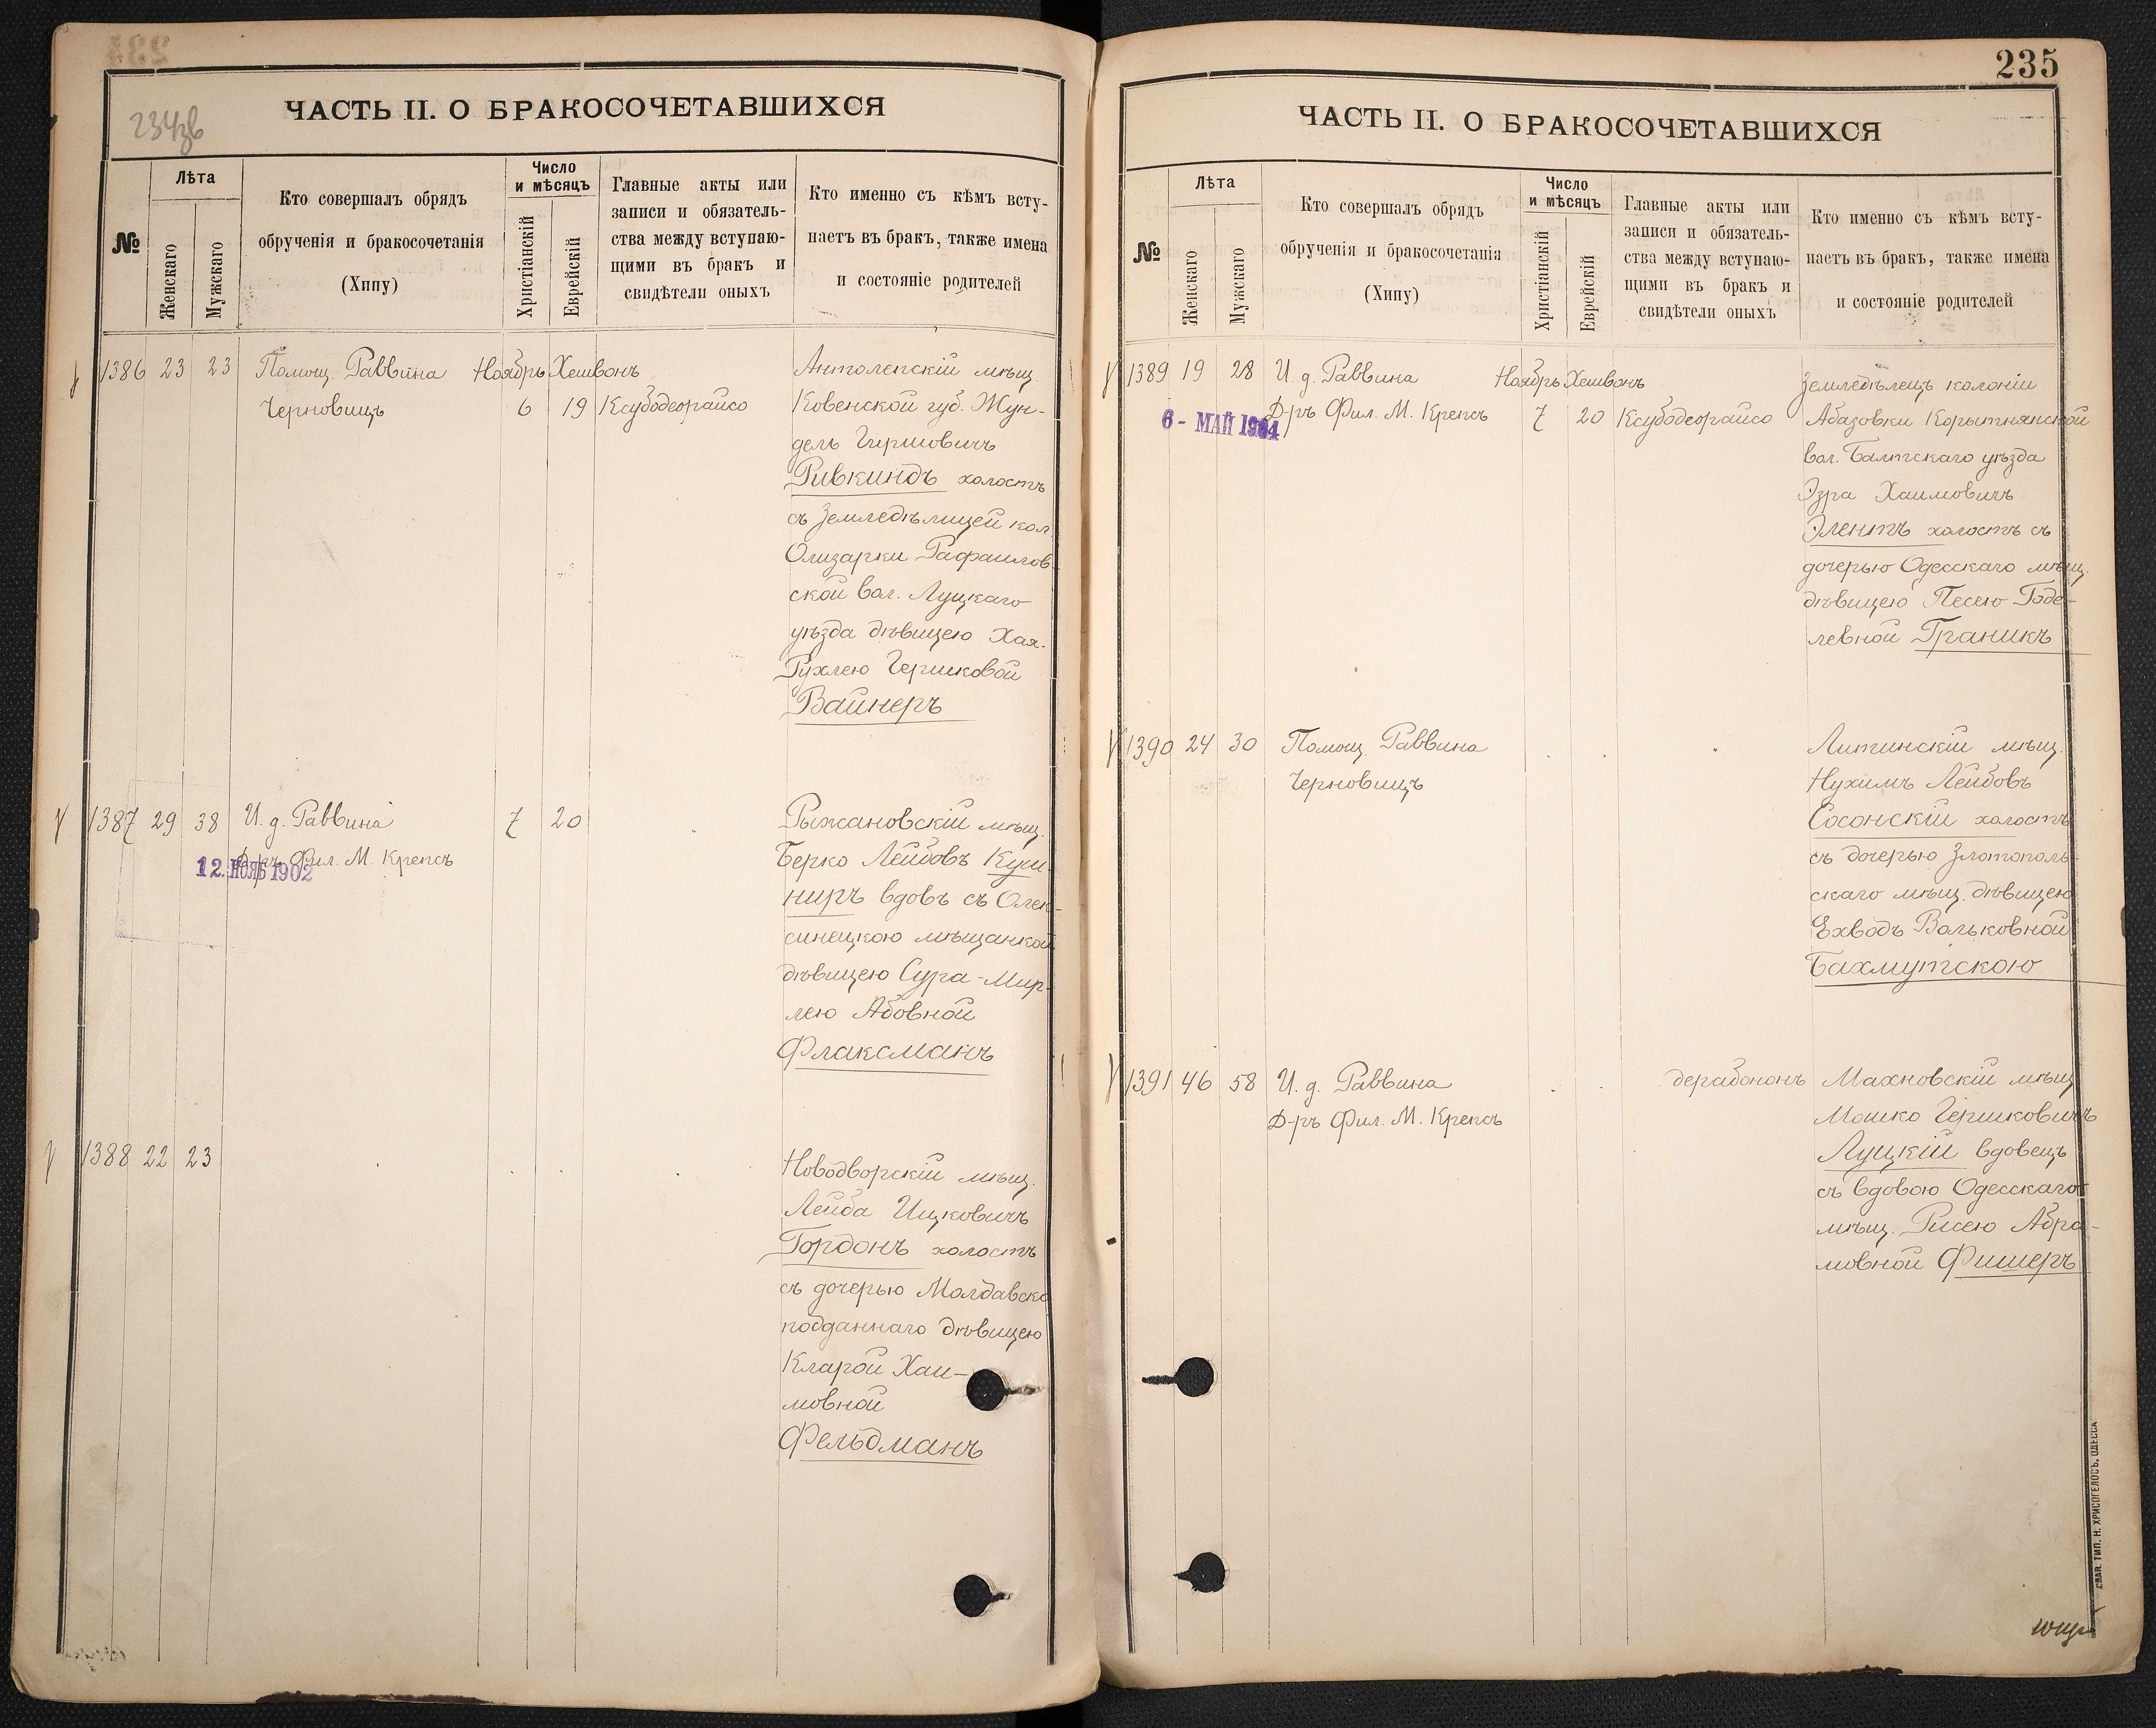 234зв
ЧАСТЬ II. О БРАКОСОЧЕТАВШИХСЯ
№
Лѣта
Женскаго
Мужскаго
Кто совершалъ обрядъ
обрученія и бракосочетанія
(Хипу)
Число
и мѣсяцъ
Христіанскій
Еврейскій
Главные акты или
записи и обязатель-
ства между вступаю-
щими въ бракъ и
свидѣтели оныхъ
Кто именно съ кѣмъ всту-
паетъ въ бракъ, также имена
и состояніе родителей
1386 23 23 Помощ. Раввина Ноябрь Хешвонъ
Черновицъ 6 19 Ксубодеорайсо
Антолепскій мѣщ.
Ковенской губ. Жун-
дель Гиршовичъ
Ривкиндъ холостъ
съ земледѣлицей кол.
Олизарки Рафаилов-
ской вол. Луцкаго
уѣзда дѣвицею Хая-
Рухлею Гершковой
Вайнеръ
1387 29 38 И. д. Раввина 7 20
Д-ръ Фил. М. Крепсъ
12. НОЯБ 1902
Рыжановскій мѣщ.
Берко Лейбовъ Куш-
ниръ вдовъ съ Олек-
синецкою мѣщанкой
дѣвицею Сура-Мир-
лею Абовной
Флаксманъ
1388 22 23
Новодворскій мѣщ.
Лейба Ицковичъ
Гордонъ холостъ
съ дочерью Молдавско
подданнаго дѣвицею
Кларой Хаи-
мовной
Фельдманъ
235
ЧАСТЬ II. О БРАКОСОЧЕТАВШИХСЯ
№
Лѣта
Женскаго
Мужскаго
Кто совершалъ обрядъ
обрученія и бракосочетанія
(Хипу)
Число
и мѣсяцъ
Христіанскій
Еврейскій
Главные акты или
записи и обязатель-
ства между вступаю-
щими въ бракъ и
свидѣтели оныхъ
Кто именно съ кѣмъ всту-
паетъ въ бракъ, также имена
и состояніе родителей
1389 19 28 И. д. Раввина Ноябрь Хешвонъ
Д-ръ Фил. М. Крепсъ 7 20 Ксубодеорайсо
6 - МАЙ 1904
Земледѣлецъ колоніи
Абазовки Корытнянской
вол. Балтскаго уѣзда
Эзра Хаимовичъ
Элентъ холостъ съ
дочерью Одесскаго мѣщ.
дѣвицею Песею Годе-
левной Граникъ
1390 24 30 Помощ. Раввина
Черновицъ
Литинскій мѣщ.
Нухимъ Лейбовъ
Сосонскій холостъ
съ дочерью Златополь-
скаго мѣщ. дѣвицею
Ехводъ Вольковной
Бахмутскою
1391 46 58 И. д. Раввина дерабононъ
Д-ръ Фил. М. Крепсъ
Махновскій мѣщ.
Мошко Гершковичъ
Луцкій вдовецъ
съ вдовою Одесскаго
мѣщ. Рисею Абра-
мовной Фишеръ
СЛАВ. ТИП. Н. ХРИСОГЕЛОСЪ. ОДЕССА